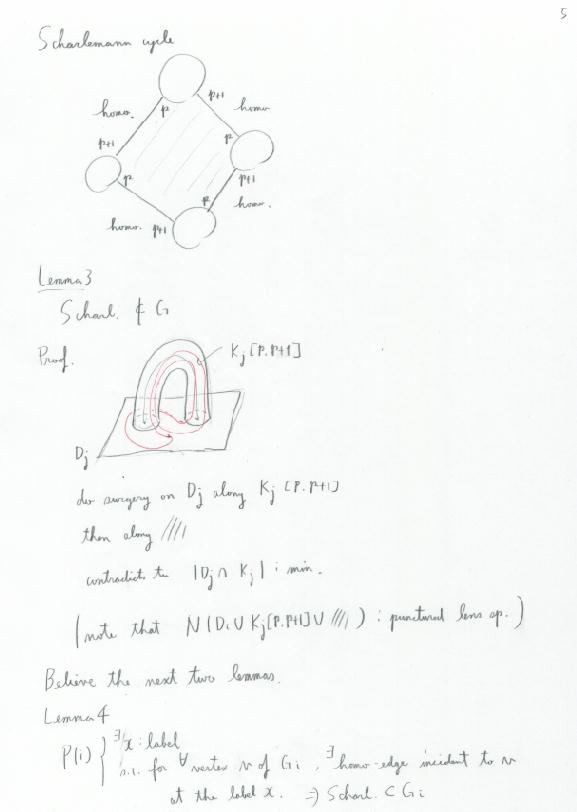 5
Scharlemann cycle
homo. p p+1 homo
p+1 p
p p+1
p homo.
homo. p+1
Lemma 3
Scharl. ⊄ G
Proof. Kj [p.p+1]
Dj
do surgery on Dj along Kj [p.p+1]
then along ////
contradicts to |Dj ∩ Kj| : min.
(note that N(Di ∪ Kj[p.p+1] ∪ ////) : punctured lens sp.)
Believe the next two lemmas.
Lemma 4
P(i) { ∃x : label
s.t. for ∀vertex v of Gi , ∃homo-edge incident to v
at the label x. ⇒ Scharl. ⊂ Gi